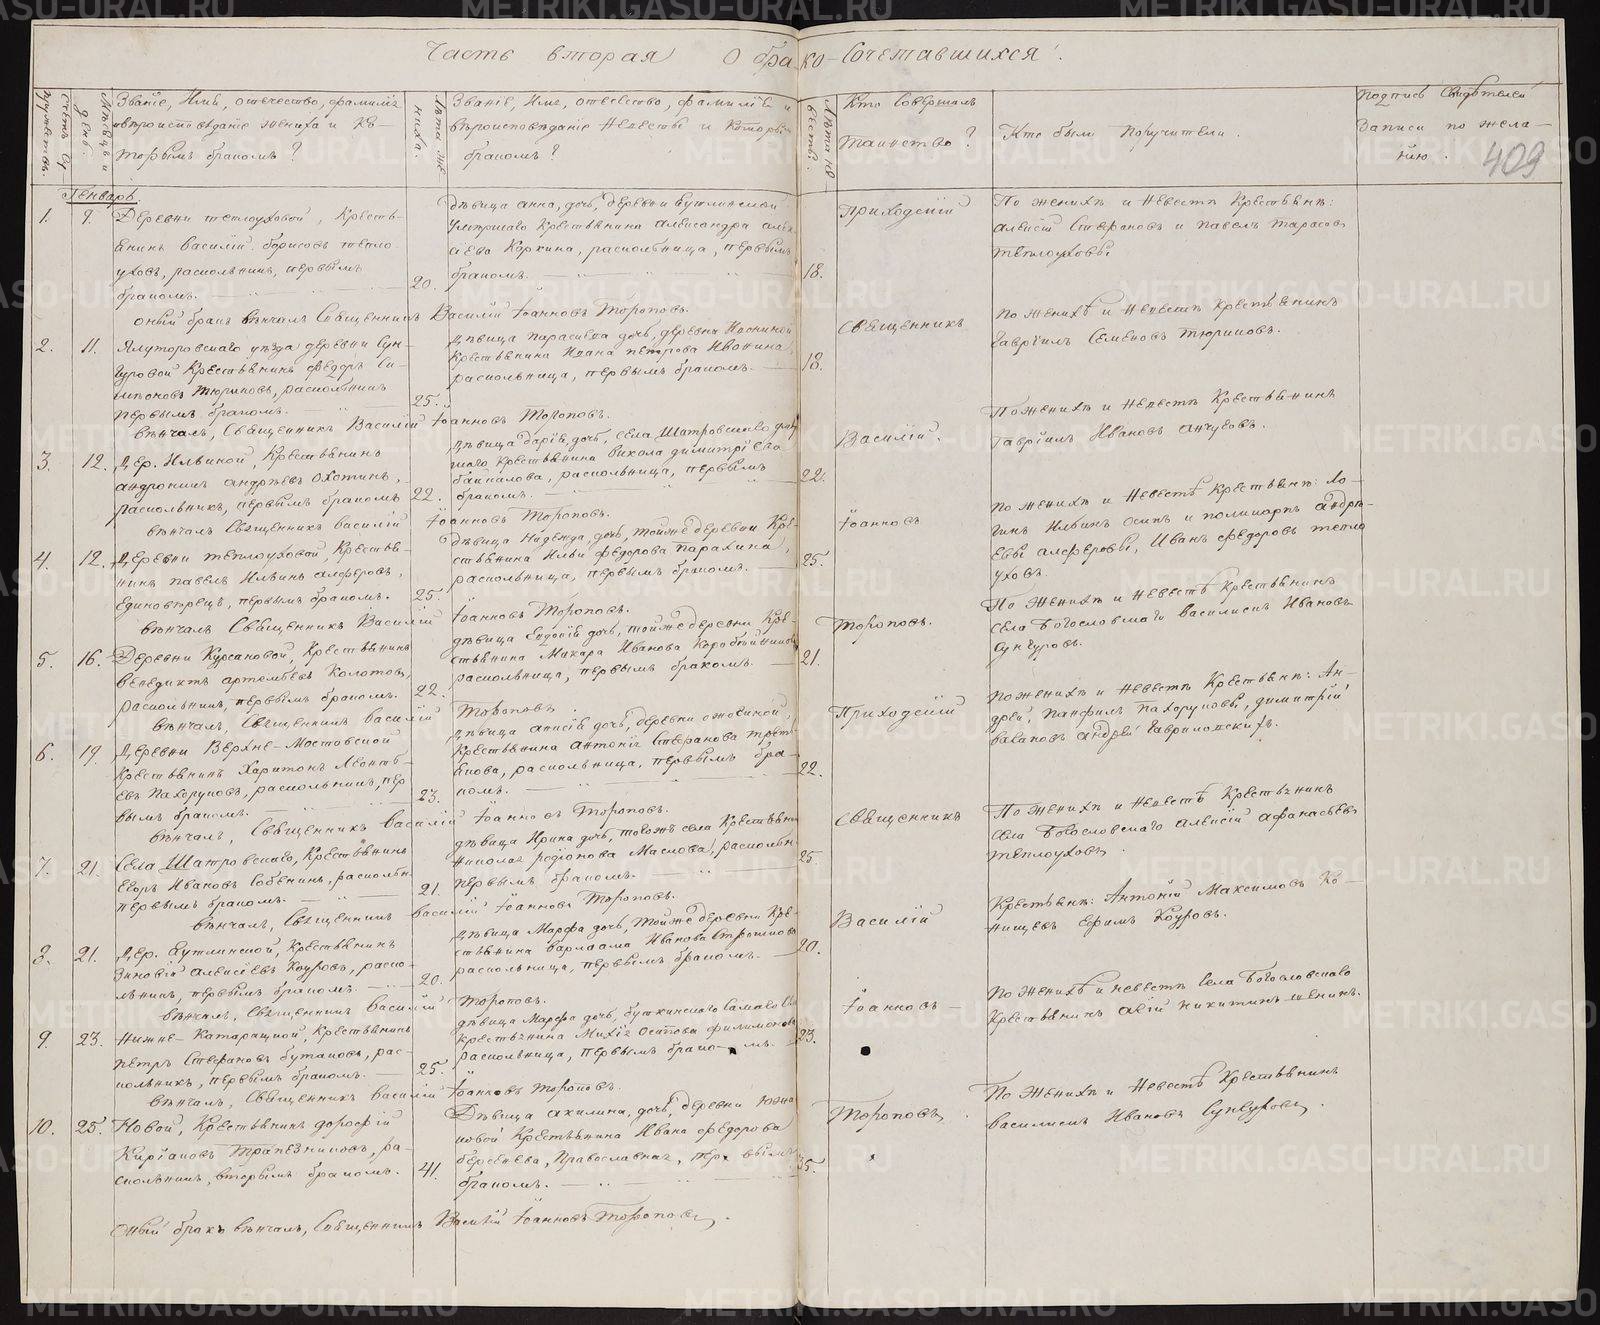 Часть вторая О брако-сочетавшихся.
409
Счетъ бра-
Мѣсяцъ и день.
Званіе, Имя, отечество, фамилія
и вѣроисповѣданіе жениха и ко-
торымъ бракомъ?
Лѣта жениха.
Званіе, Имя, отечество, фамилія и
вѣроисповѣданіе Невѣсты и которымъ
бракомъ?
Лѣта невѣсты.
Кто совершалъ
Таинство?
Кто были поручители.
Подпись свидѣтелей
записи по жела-
нію.
Генварь.
1. 9. Деревни теплоуховой, Кресть-
янинъ Василій борисовъ тепло
уховъ, раскольникъ, первымъ
бракомъ. 20.
Дѣвица анна, дочь, деревни бутлинской
умершаго Крестьянина александра алек
сѣева Коркина, раскольница, первымъ
бракомъ. 18.
Приходскій
По женихѣ и Невестѣ Крестьяне:
алексій Стефановъ и павелъ тарасовъ
теплоуховы
оный бракъ вѣнчалъ Священникъ Василій Іоанновъ Тороповъ.
2. 11. Ялуторовскаго уѣзда деревни Сун-
гуровой Крестьянинъ Федоръ Си-
меоновъ Тюриковъ, раскольникъ
первымъ бракомъ. 25.
Дѣвица параскева дочь, деревни
Крестьянина Ивана петрова Ивонина,
раскольница, первымъ бракомъ. 18.
Священникъ
По женихѣ и Невестѣ Крестьянинъ
Гавріилъ Семеновъ тюриковъ.
вѣнчалъ, Священникъ Василій Іоанновъ Тороповъ.
3. 12. Дер. Ильиной, Крестьянинъ
андроникъ андрѣевъ Охотинъ,
раскольникъ, первымъ бракомъ 22.
Дѣвица дарія, дочь, села Шатровскаго
Крестьянина Викола димитріева
байкалова, раскольница, первымъ
бракомъ. 22.
Василій.
По женихѣ и Невестѣ Крестьянинъ
гавріилъ Ивановъ анчуговъ.
вѣнчалъ Священникъ Василій Іоанновъ Тороповъ.
4. 12. Деревни теплоуховой, Крестья-
нинъ павелъ Ильинъ алферовъ,
Единовѣрецъ, первымъ бракомъ. 25.
Дѣвица Надежда, дочь, тойже деревни Кре-
стьянина Ильи Федорова Паражина,
раскольница, первымъ бракомъ. 25.
Іоанновъ
По женихѣ и Невестѣ Крестьяне:
Ильинъ Осипъ и поликарпъ андрѣ-
евы алферовы, Иванъ Федоровъ тепло
уховъ.
вѣнчалъ Священникъ Василій Іоанновъ Тороповъ.
5. 16. Деревни Курсановой, Крестьянинъ
Венедиктъ артемьевъ Колотовъ,
раскольникъ, первымъ бракомъ. 22.
Дѣвица Евдокія дочь, тойже деревни Кре-
стьянина Макара Иванова Коробейникова
раскольница, первымъ бракомъ. 21.
Тороповъ.
По женихѣ и Невестѣ Крестьянинъ
села Богословскаго Василискъ Ивановъ
Сунгуровъ.
вѣнчалъ, Священникъ Василій Тороповъ.
6. 19. Деревни Верхне-Мостовской
Крестьянинъ Харитонъ Леонть-
евъ Пахоруковъ, раскольникъ, пер
вымъ бракомъ. 23.
Дѣвица анисія дочь, деревни ожогиной
Крестьянина антонія Стефанова треть
якова, раскольница, первымъ бра-
комъ. 22.
Приходскій
По женихѣ и Невестѣ Крестьяне: Ан-
дрей, Панфилъ Пахоруковы, димитрій
андрей Гавриловскихъ.
вѣнчалъ, Священникъ Василій Іоанновъ Тороповъ.
7. 21. Села Шатровскаго, Крестьянинъ
Егоръ Ивановъ Собенинъ, раскольн.
первымъ бракомъ. 21.
Дѣвица Ирина дочь, тогожъ села Крестьянина
Николая родіонова Маслова, раскольн.
первымъ бракомъ. 25.
Священникъ
По женихѣ и Невестѣ Крестьянинъ
села Богословскаго Алексій афанасьевъ
теплоуховъ.
вѣнчалъ, Священникъ Василій Іоанновъ Тороповъ.
8. 21. Дер. Бутлинской, Крестьянинъ
Зиновій алексѣевъ Коуровъ, раско-
льникъ, первымъ бракомъ. 20.
Дѣвица Марфа дочь, тойже деревни Кре-
стьянина варлаама Иванова
раскольница, первымъ бракомъ. 20.
Василій
Крестьяне: Антоній Максимовъ Ко-
нищевъ Ефимъ Коуровъ.
вѣнчалъ, Священникъ Василій Тороповъ.
9. 23. Нижне-Катарацкой, Крестьянинъ
петръ Стефановъ бутаковъ, рас-
кольникъ, первымъ бракомъ. 25.
Дѣвица Марфа дочь, буткинскаго
Крестьянина Михія Осипова филимонова
раскольница, первымъ бракомъ. 23.
Іоанновъ
По женихѣ и невестѣ Села Богословскаго
Крестьянинъ авій никитинъ
вѣнчалъ, Священникъ Василій Іоанновъ Тороповъ.
10. 25. Новой, Крестьянинъ дорофій
Киріаковъ Трапезниковъ, ра-
скольникъ, вторымъ бракомъ. 41.
Дѣвица акилина, дочь, деревни
Крестьянина Ивана федорова
берсенева, Православная, первымъ
бракомъ. 35.
Тороповъ.
По женихѣ и Невестѣ Крестьянинъ
василискъ Ивановъ Сунгуровъ.
Оный бракъ вѣнчалъ, Священникъ Василій Іоанновъ Тороповъ.
METRIKI.GASO-URAL.RU